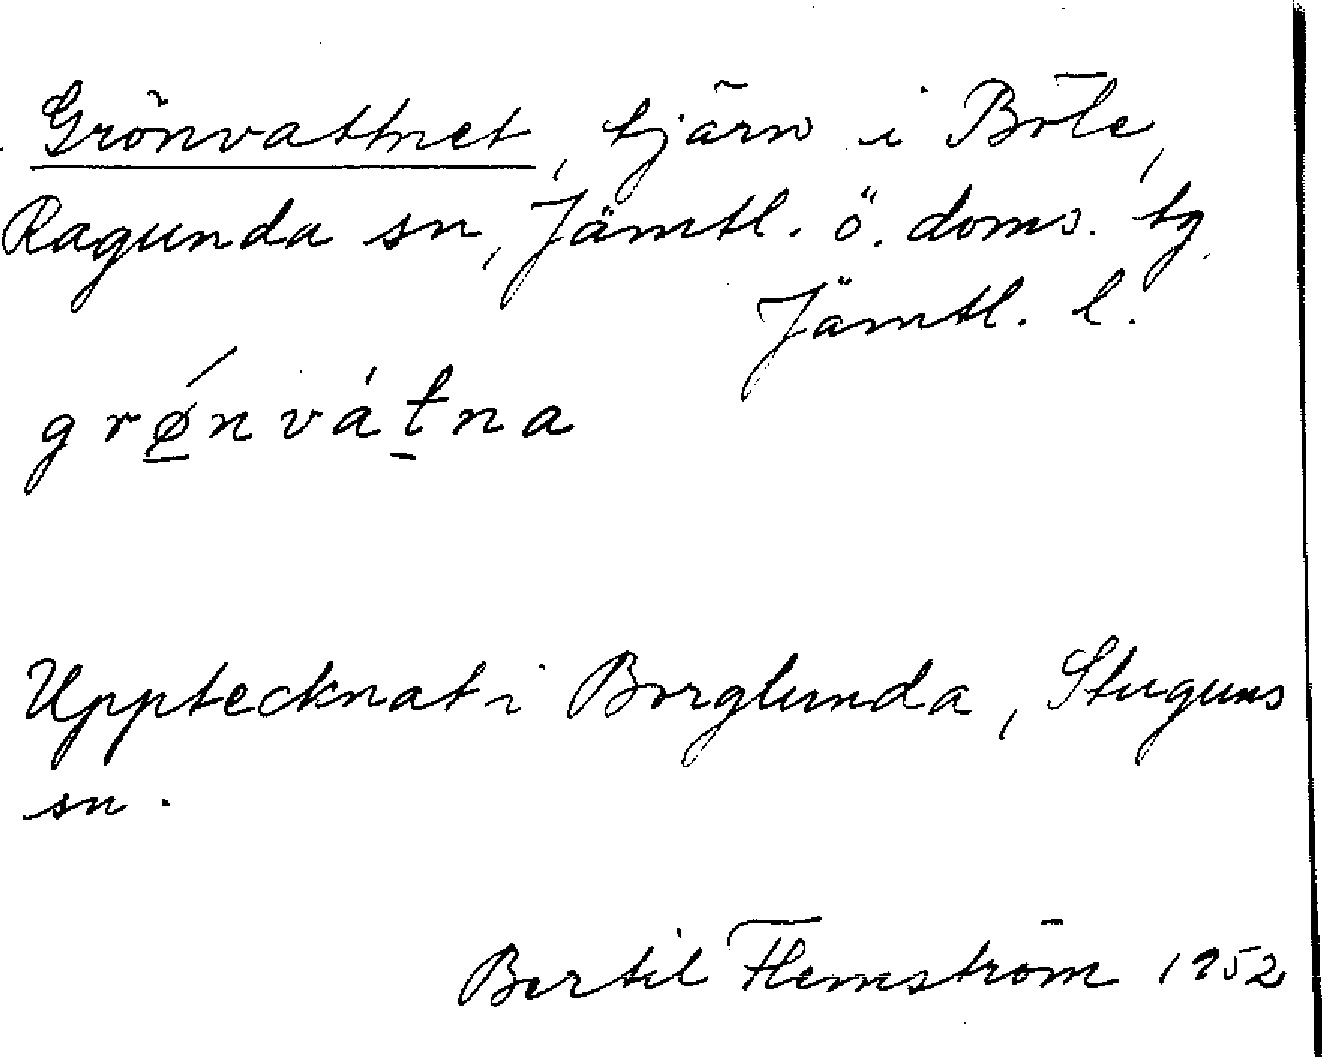 Grönvattnet, tjärn i Böle,
Ragunda sn, Jämtl. ö. doms. tg
Jämtl. l.
grǿ̱nváṯna
Upptecknat i Borglunda, Stuguns
sn.
Bertil Flemström 1952